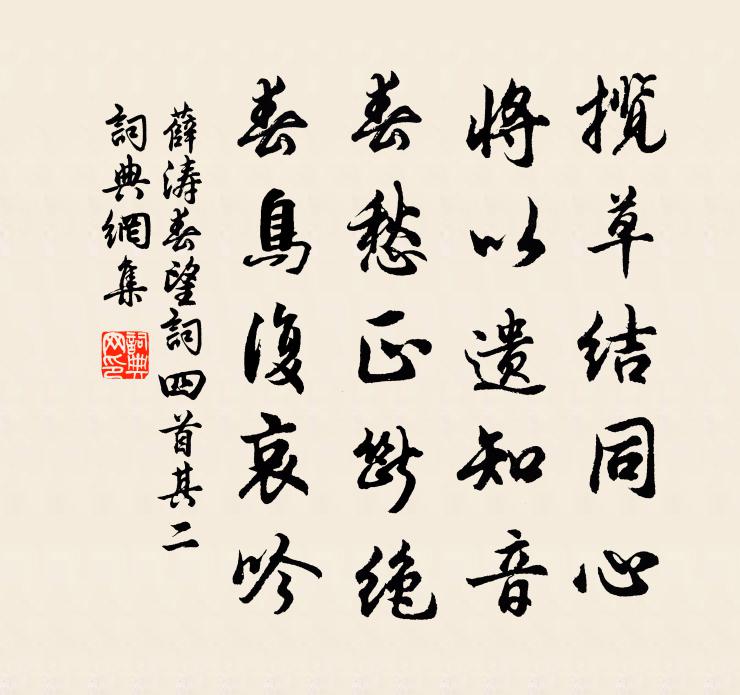 揽草結同心
將以遗知音
春愁正斷绝
春鳥復哀吟
薛涛春望詞四首其二
詞典網集
詞典
网印